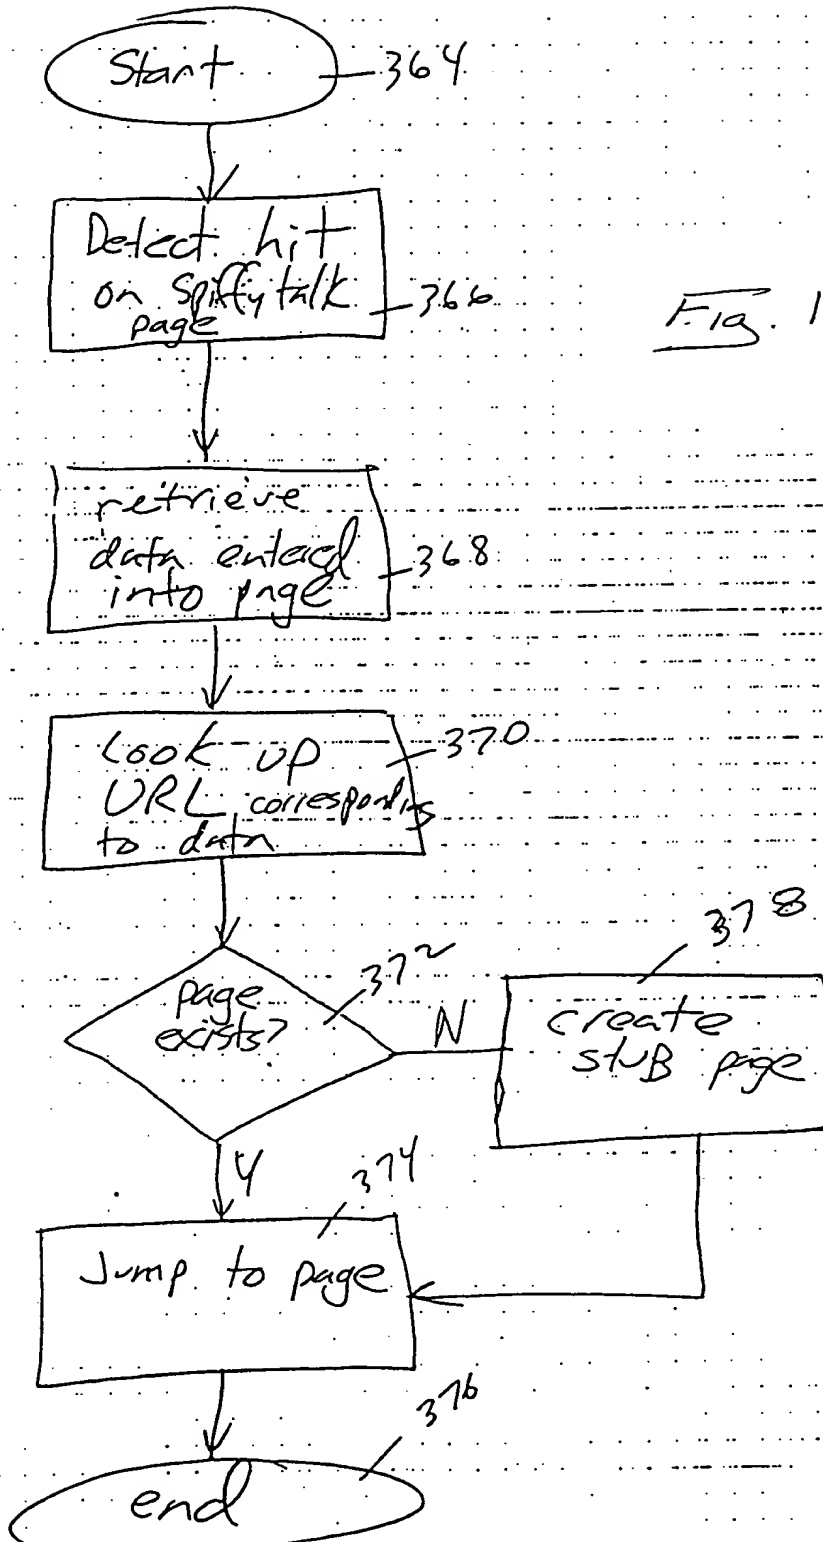 Start
364
Detect hit
on Spiffy talk
page
366
Fig. 1
retrieve
data entered
into page
368
Look up
370
URL corresponding
to data
page
exists?
372
N
378
create
stuB page
Y
374
Jump to page
376
end